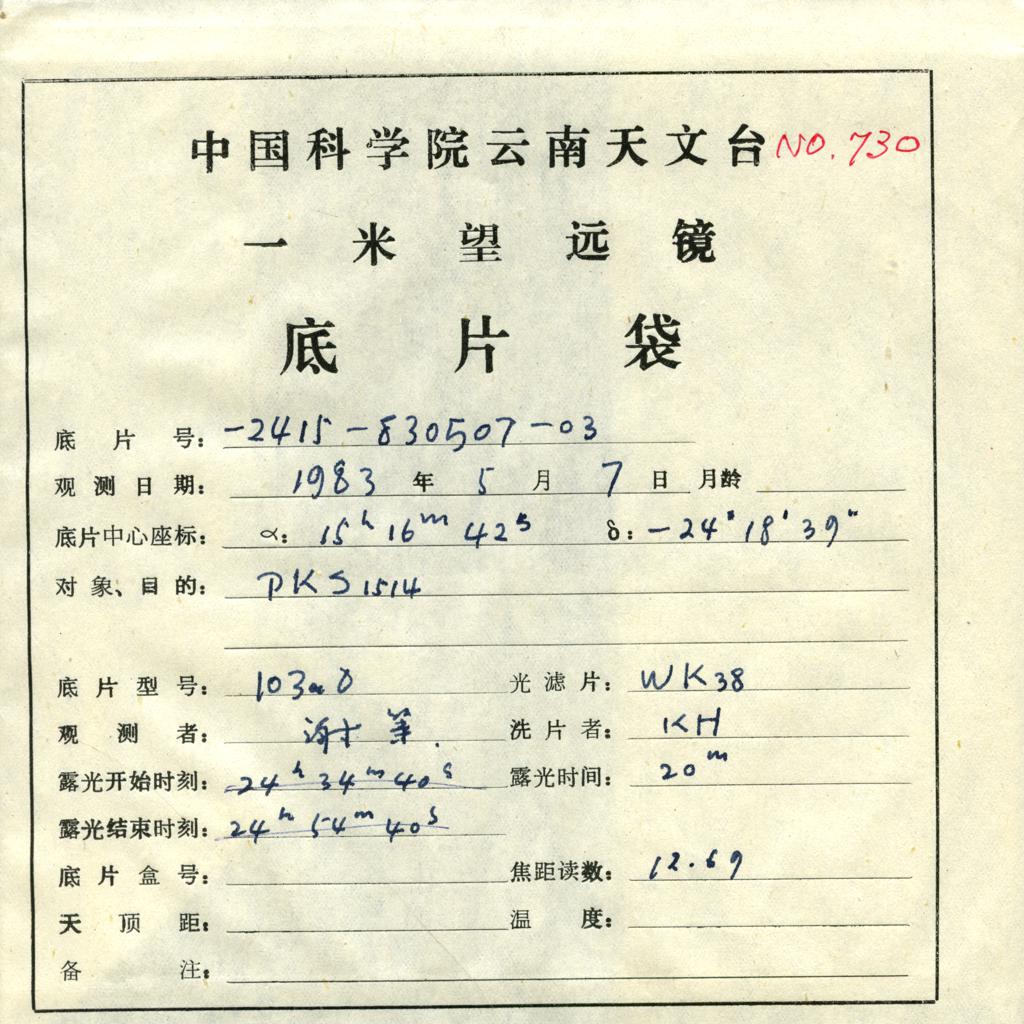 中国科学院云南天文台 NO.730
一米望远镜
底片袋
底片号: -2415-830507-03
观测日期: 1983年5月7日 月龄
底片中心座标: α: 15h16m42s δ: -24°18'39"
对象、目的: PKS1514
底片型号: 103aO 光滤片: WK38
观测者: 谢等. 洗片者: KH
露光开始时刻: 24h34m40s 露光时间: 20m
露光结束时刻: 24h54m40s
底片盒号: 焦距读数: 12.69
天顶距: 温度:
备注: